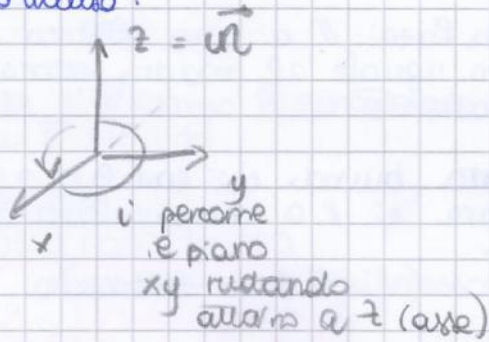 z = n
y
x
i percorre
e piano
xy ruotando
attorno a z (asse)